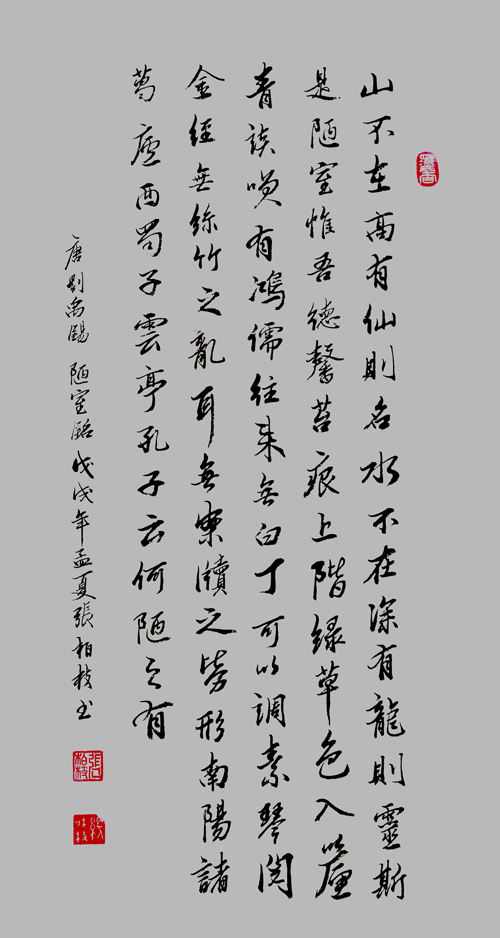 山不在高有仙則名水不在深有龍則靈斯
是陋室惟吾德馨苔痕上階綠草色入簾
青談咲有鴻儒往來無白丁可以調素琴閱
金經無絲竹之亂耳無案牘之勞形南陽諸
葛廬西蜀子雲亭孔子云何陋之有
唐劉禹錫 陋室銘 戊戌年孟夏張柏枝书